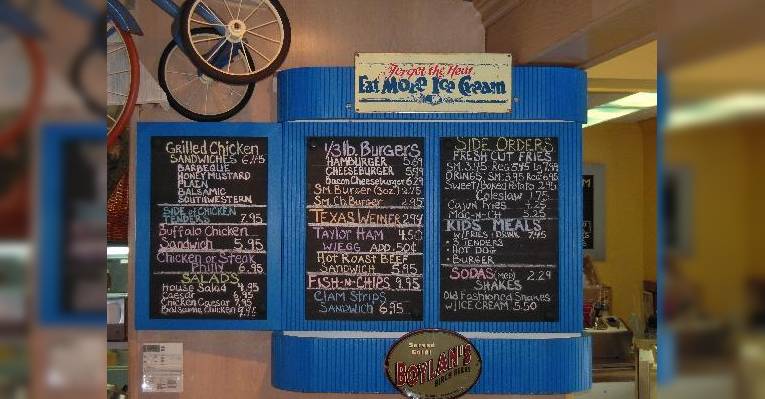 Forget the Heat
Eat More Ice Cream
Grilled Chicken
SANDWICHES 6.75
BARBEQUE
HONEY MUSTARD
PLAIN
BALSAMIC
SOUTHWESTERN
SIDE of CHICKEN
TENDERS 7.95
Buffalo Chicken
Sandwich 5.95
Chicken or Steak
Philly 6.95
SALADS
House Salad 4.95
Caesar 6.95
Chicken Caesar 7.95
Balsamic Chicken 9.95
1/3 lb. Burgers
HAMBURGER
CHEESEBURGER
Bacon Cheeseburger 6.29
Sm. Burger (3oz) 2.75
Sm. Ch. Burger 2.95
TEXAS WEINER 2.94
TAYLOR HAM 4.50
W/EGG ADD .50¢
HOT ROAST BEEF
SANDWICH 5.95
FISH-N-CHIPS 9.95
Clam Strips
SANDWICH 6.95
SIDE ORDERS
FRESH CUT FRIES
SM. 3.45 Reg 5.45 Lg 7.49
ORINGS SM. 3.95 Reg 6.95
Sweet/Baked Potato 2.95
Coleslaw 1.75
Cajun Fries 4.25
Mac-n-CH 5.25
KIDS MEALS
W/FRIES + DRINK 7.45
• 3 TENDERS
• HOT DOG
• BURGER
SODAS (MED) 2.29
SHAKES
Old Fashioned Shakes
W/ICE CREAM 5.50
Served
Cold!
BOYLAN'S
BIRCH BEER